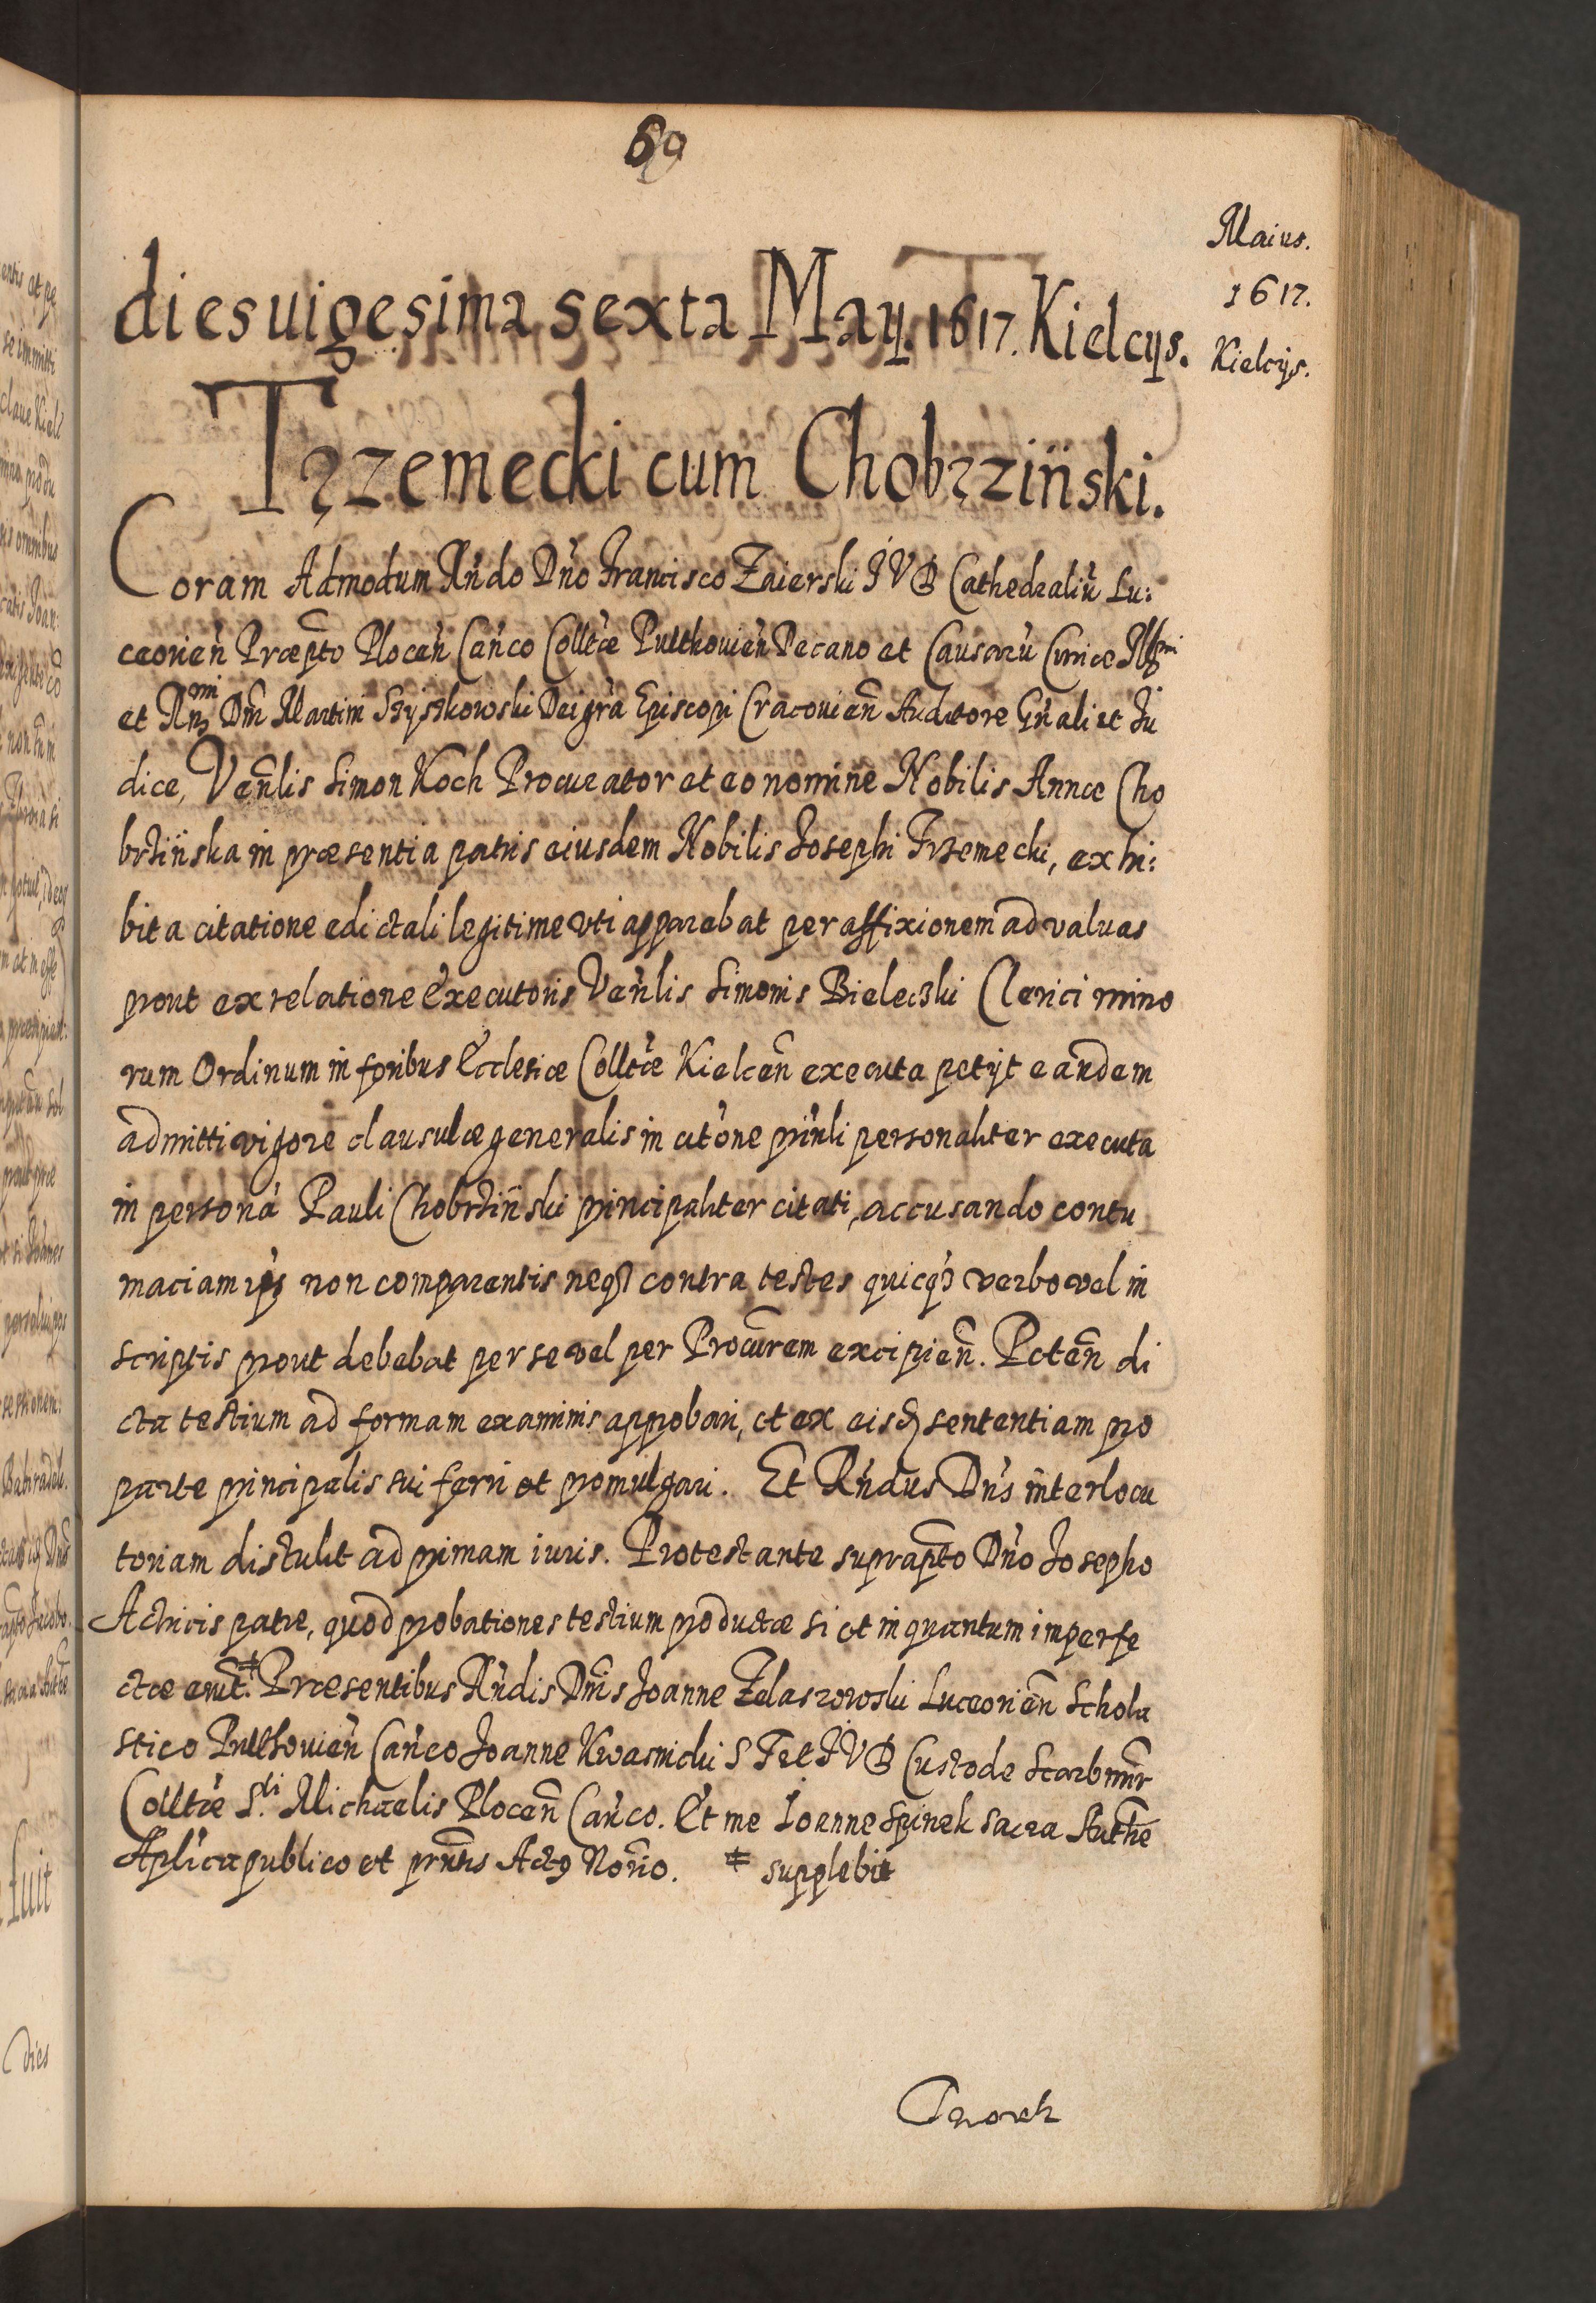 69
Maius.
1617.
Kielcijs.
dies uigesima sexta Maij. 1617. Kielcijs.
Trzzemecki cum Chobrzziński.
Coram Admodum Rńdo Dńo Francisco Zaierski I V D Cathedraliũ Lu:
ceorień Præpto Ploceń Cańco Colltæ Pultouień Decano et Causarũ Curiæ Illmi
et Rmi Dñi Martini Szyszkowski Dei gra Episcopi Cracouieñ Auditore Gñali et Iu
dice, Veñlis Simon Koch Procurator et eo nomine Nobilis Annæ Cho
brzińska in præsentia patris eiusdem Nobilis Iosephi Trzemecki, exhi:
bita citatione edictali legitime vti apparebat per affixionem ad valuas
prout ex relatione executoris Veńlis Simonis Bieleczki Clerici mino
rum Ordinum in foribus Ecclesiæ Colltæ Kielceñ executa petijt eandem
admitti vigore clausulæ generalis in citone prinli personaliter executa
in persona Pauli Chobrziński principaliter citati, accusando contu
maciam ipś non comparentis neqз contra testes quicqз verbo vel in
scriptis prout debebat per se vel per Procurem excipieñ. Peteñ di
cta testium ad formam examinis approbari, et ex eisdз sententiam pro
parte principalis sui ferri et promulgari. Et Rńdus Dńs interlocu
toriam distulit ad primam iuris. Protestante suprapto Dńo Iosepho
Actricis patre, quod probationes testium productæ si et in quantum imperfe
ctæ erut.‡ Præsentibus Rńdis Dñis Ioanne Zelaszowski Luceorieñ Schola
stico Pultouień Cańco Ioanne Kwasnicki S T et I V D Custode Scarbimr
Colltæ S.ti Michaelis Ploceñ Cańco. Et me Ioanne Spinek sacra Authe
Aplica publico et prntis Actз Norio. ‡ supplebit